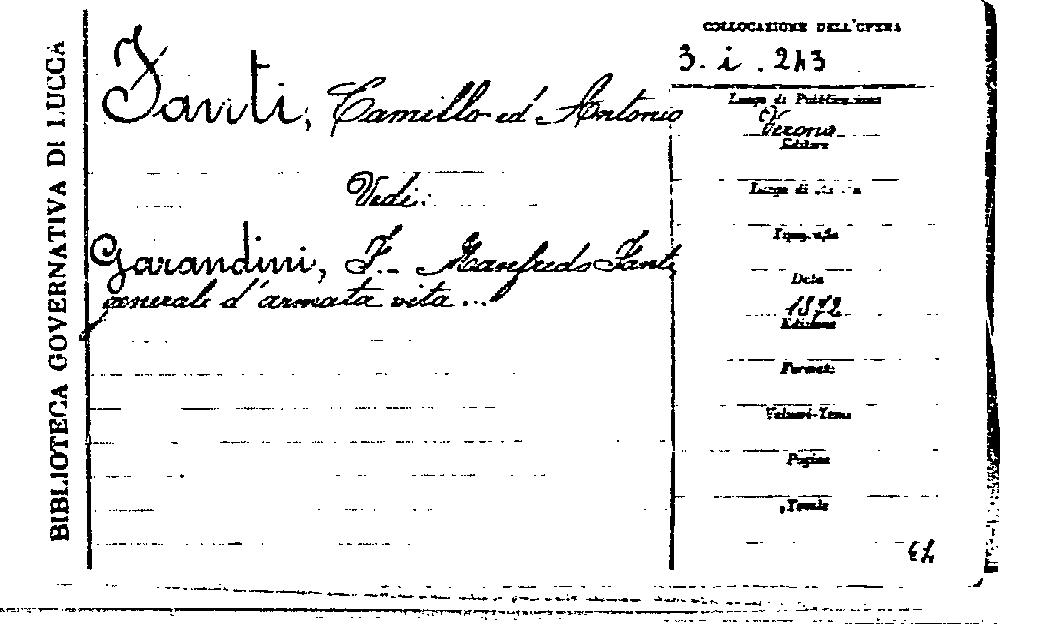 BIBLIOTECA GOVERNATIVA DI LUCCA
Fanti, Camillo ed Antonio
Vedi:
Garandini, F. - Manfredo Fanti
generale d'armata vita ...
COLLOCAZIONE DELL'OPERA
3. i. 243
Luogo di Pubblicazione
Verona
Editore
Luogo di
Tipografia
Data
1872
Edizione
Formato
Volumi-Tomi
Pagine
Tavole